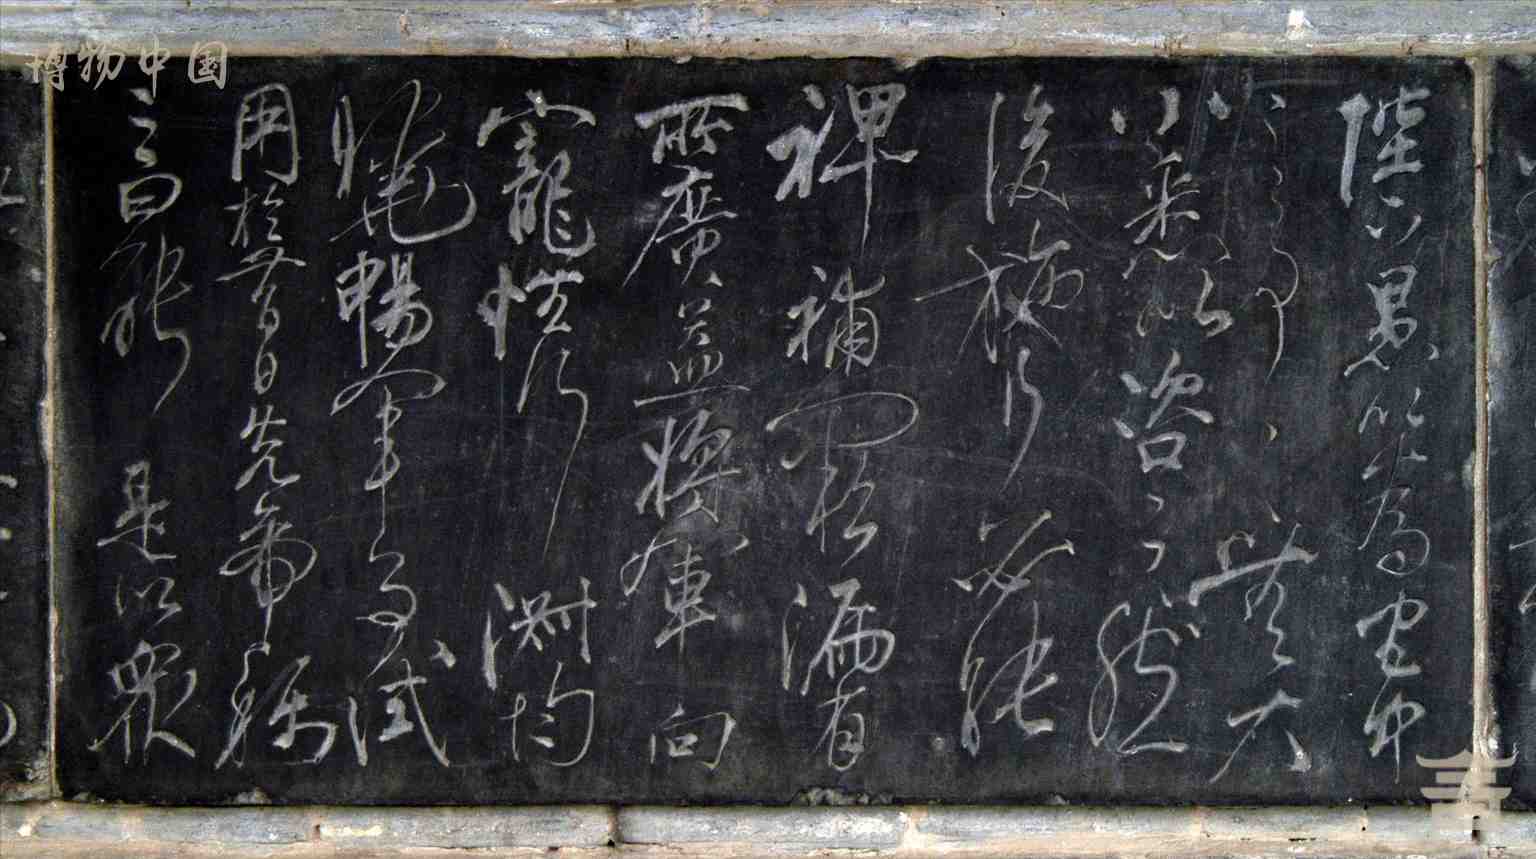 博物中国
陛下愚以為宮中
之事事無大
小悉以咨之然
後施行必能
裨補闕漏有
所廣益將軍向
寵性行淑均
曉暢軍事試
用於昔日先帝稱
之曰能是以眾